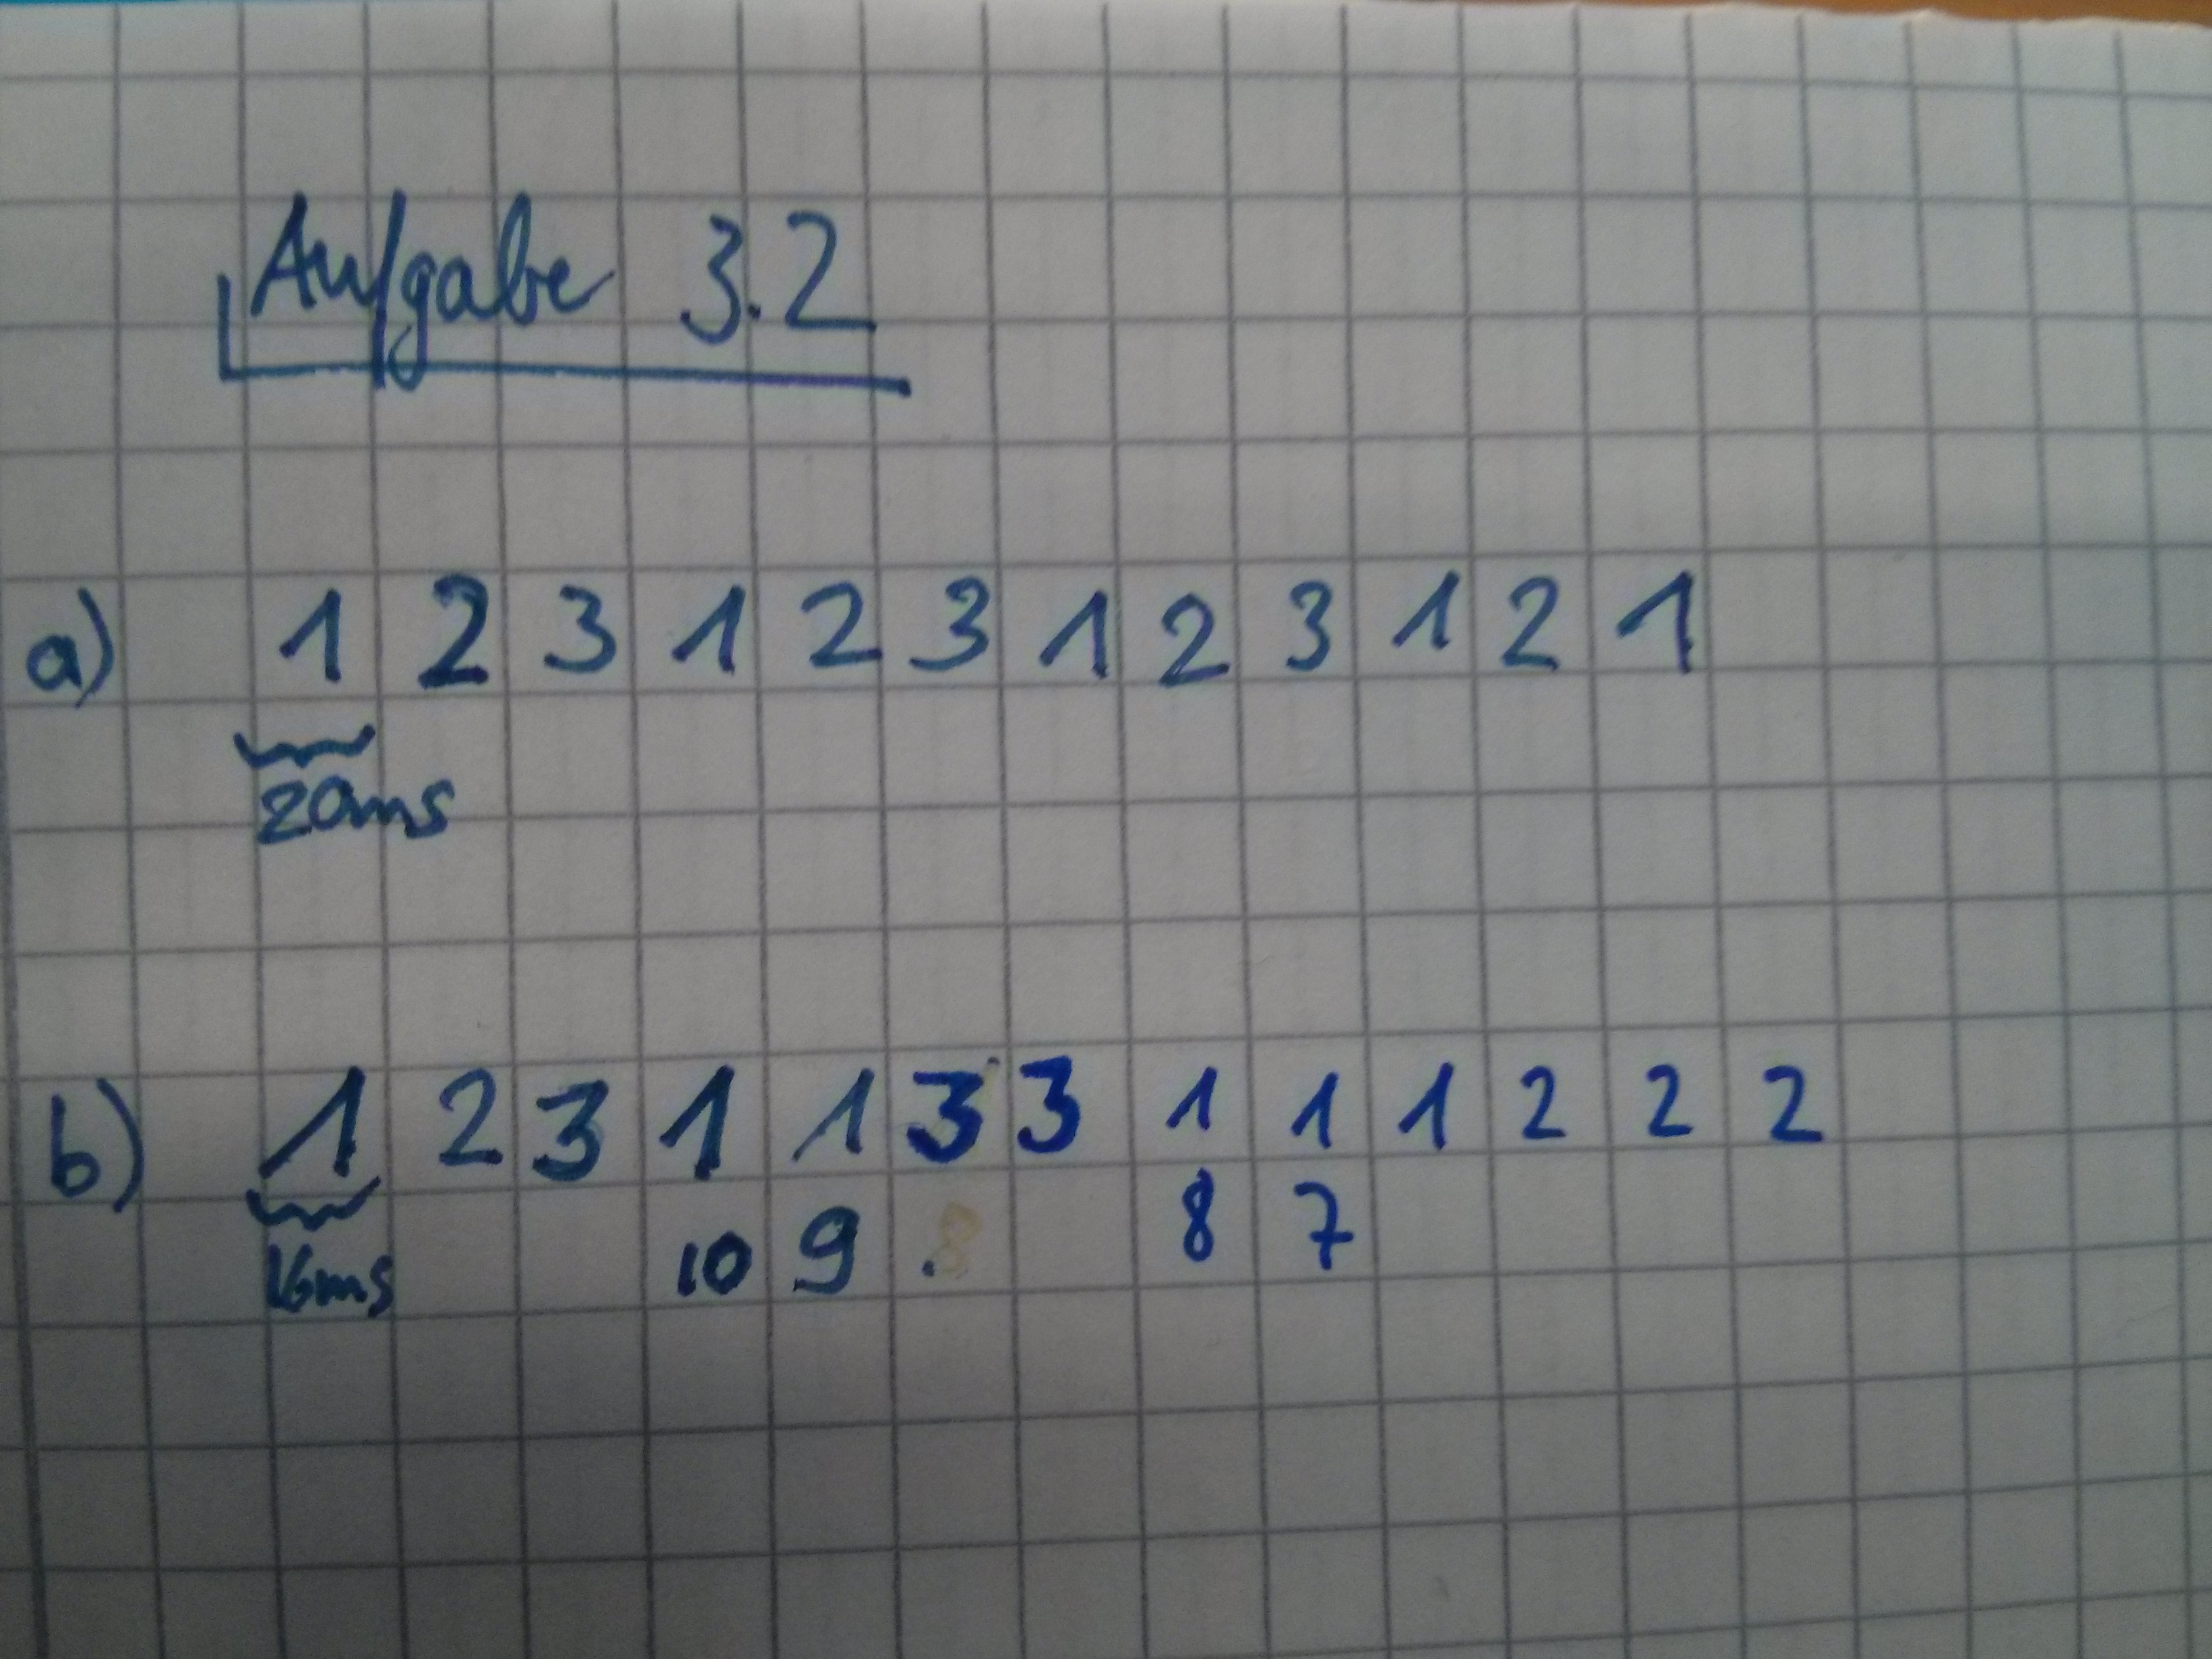 Aufgabe 3.2
a) 1 2 3 1 2 3 1 2 3 1 2 1
20ms
b) 1 2 3 1 1 3 3 1 1 1 2 2 2
16ms 10 9 . 8 8 7